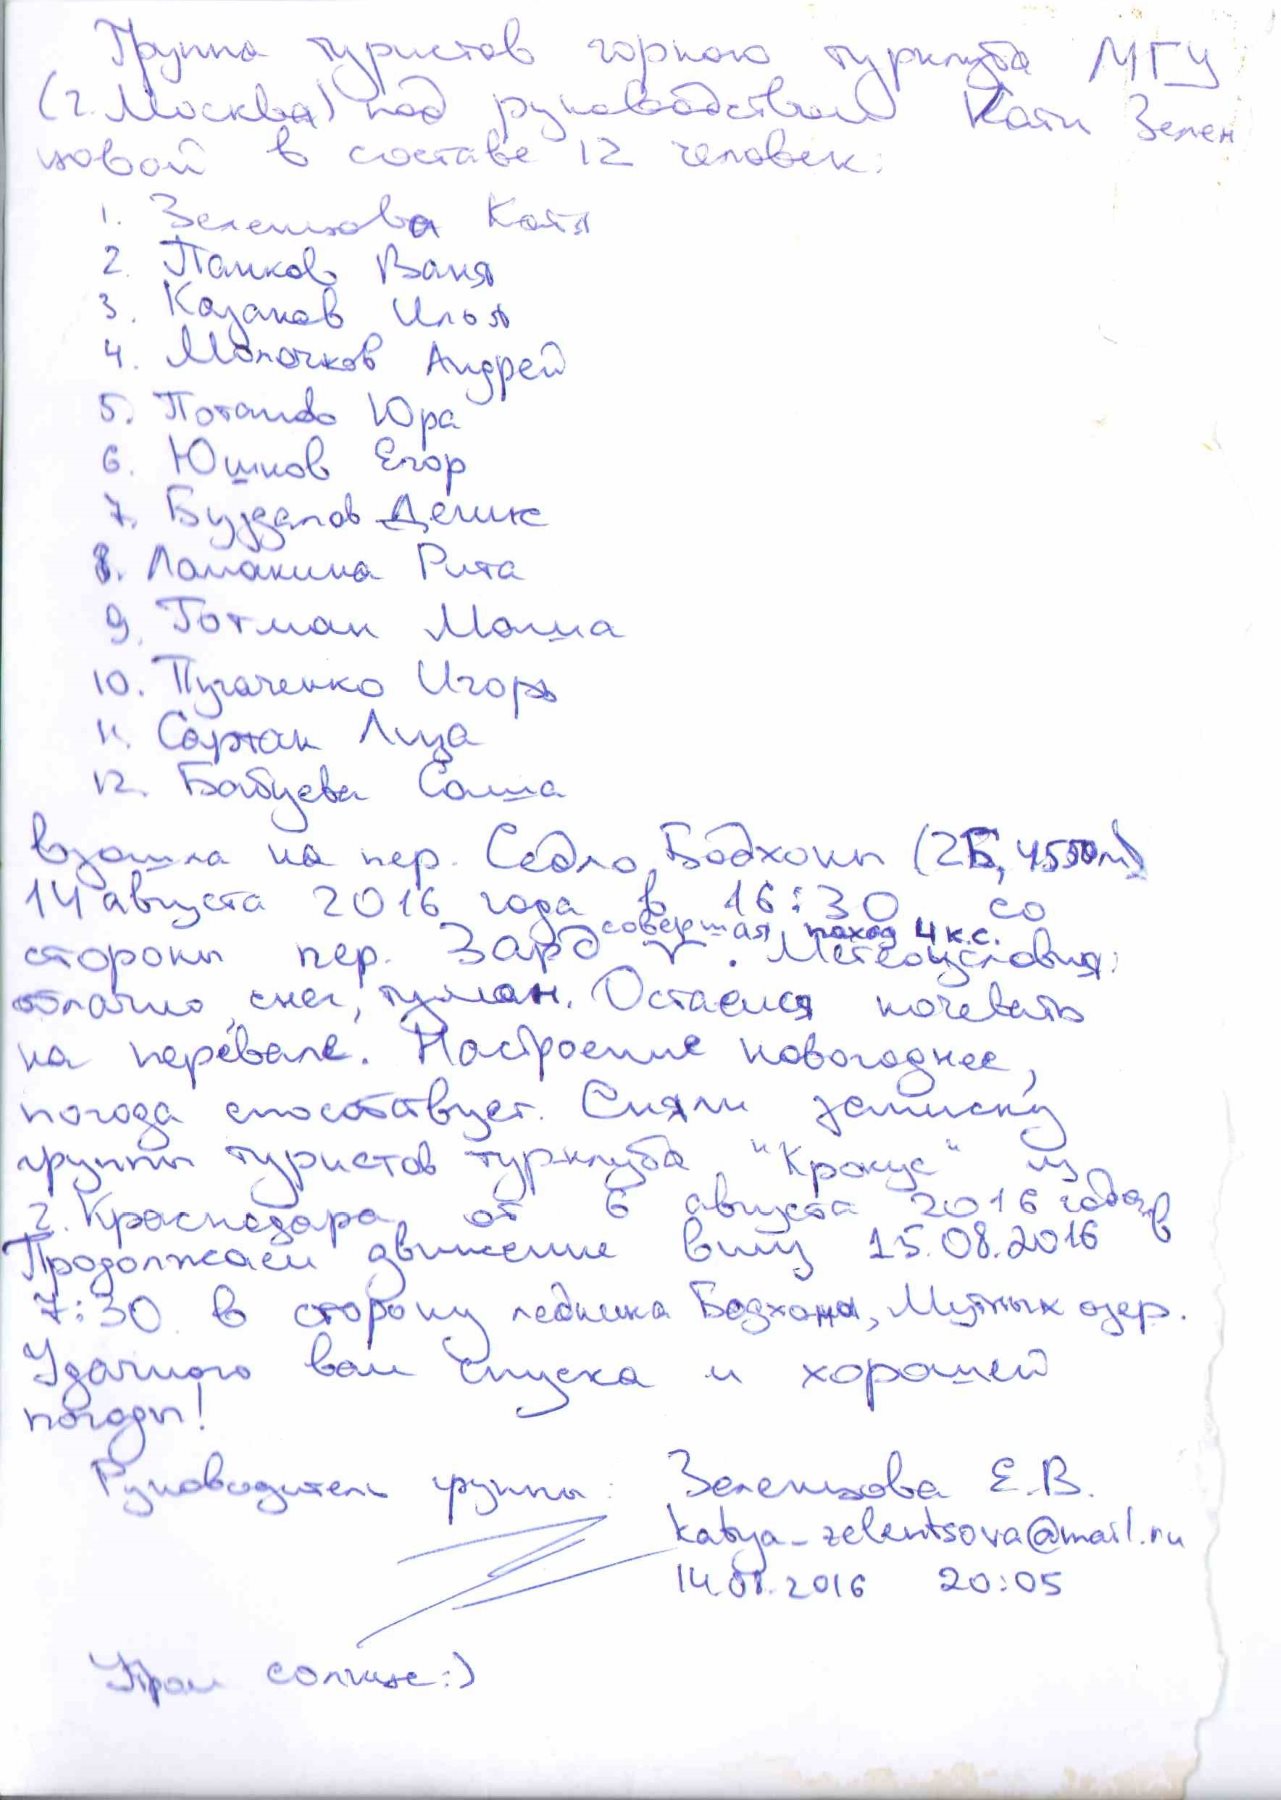 Группа туристов горного турклуба МГУ
(г. Москва) под руководством Кати Зелен
цовой в составе 12 человек:
1. Зеленцова Катя
2. Панков Ваня
3. Казаков Илья
4. Молочков Андрей
5. Потапов Юра
6. Юшков Егор
7. Буздалов Денис
8. Ламакина Рита
9. Готман Маша
10. Пугаченко Игорь
11. Сартан Лиза
12. Бабуева Саша
взошла на пер. Седло Бодхоны (2Б, 4550м)
14 августа 2016 года в 16:30 со
совершая поход 4 к.с.
стороны пер. Зард. Метеоусловия:
облачно, снег, туман. Остаемся ночевать
на перевале. Настроение новогоднее,
погода способствует. Сняли записку
группы туристов турклуба "Крокус" из
г. Краснодара от 6 августа 2016 года.
Продолжаем движение вниз 15.08.2016 в
7:30 в сторону ледника Бодхона, Мутных озер.
Удачного вам спуска и хорошей
погоды!
Руководитель группы: Зеленцова Е.В.
katya_zelentsova@mail.ru
14.08.2016 20:05
Утром солнце:)